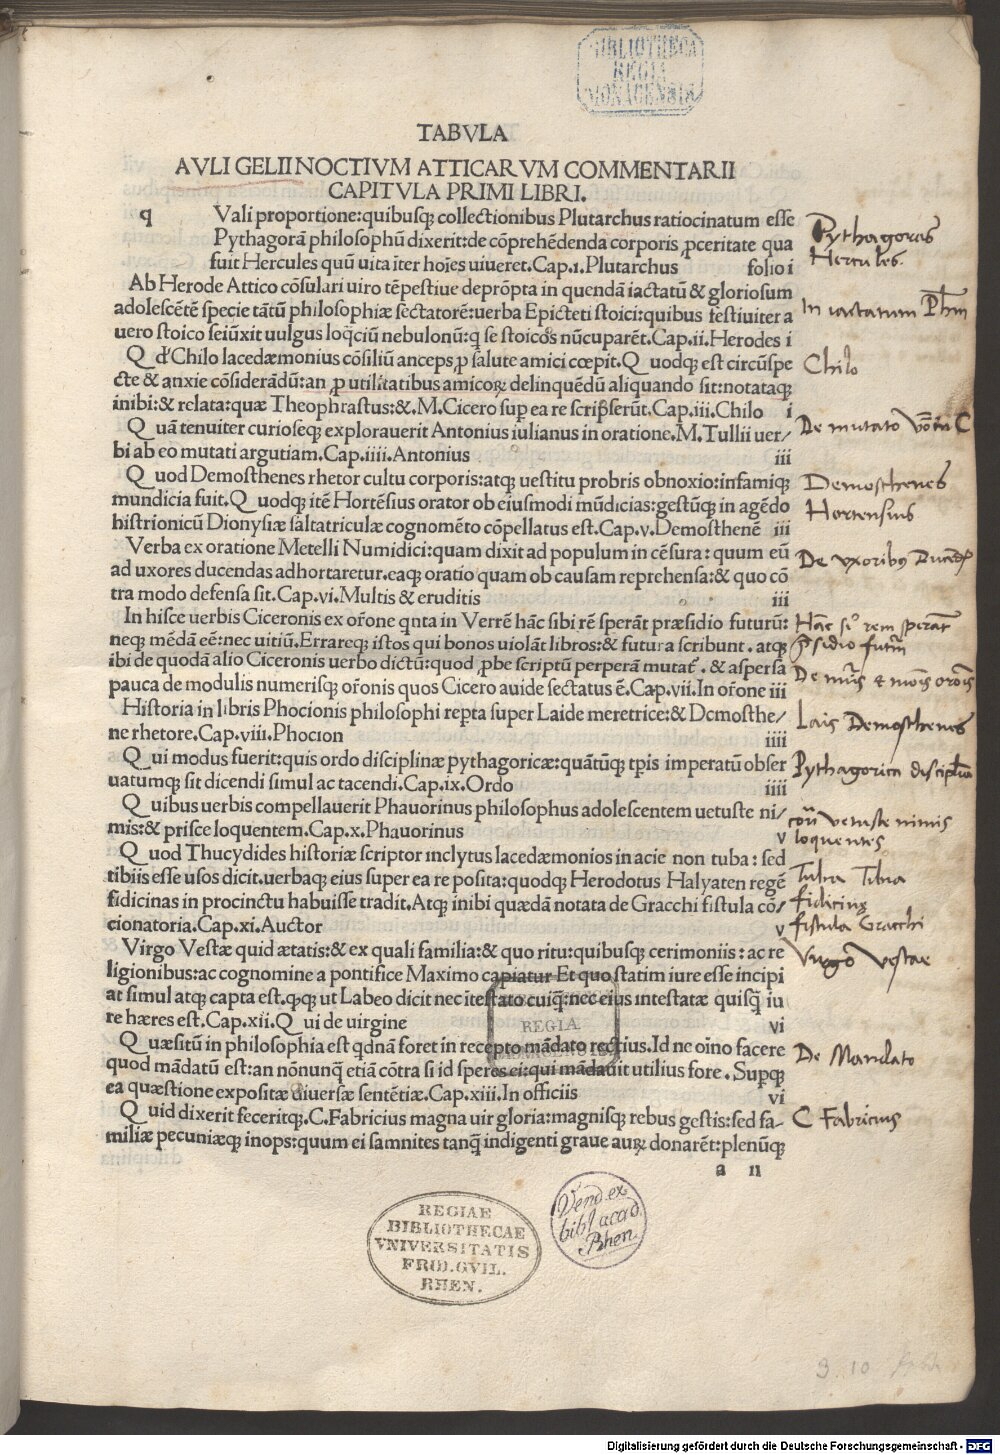 BIBLIOTHECA
REGIA
MONACENSIS
TABVLA
AVLI GELII NOCTIVM ATTICARVM COMMENTARII
CAPITVLA PRIMI LIBRI.
q Vali proportione:quibusq; collectionibus Plutarchus ratiocinatum esse
Pythagorā philosophū dixerit:de cōprehēdenda corporis ꝓceritate qua
fuit Hercules quū uita īter hoīes uiueret.Cap.i.Plutarchus folio i
Pythagoras
Hercules.
Ab Herode Attico cōsulari uiro tēpestiue deprōpta in quendā iactatū & gloriosum
adolescētē specie tātū philosophiæ sectatorē:uerba Epicteti stoici:quibus festiuiter a
uero stoico seiūxit uulgus loq̄ciū nebulonū:q̄ se stoicos nūcuparēt.Cap.ii.Herodes i
In iactatum Phm
Q d' Chilo lacedæmonius cōsiliū anceps ꝓ salute amici cœpit.Q uodq; est circūspe
cte & anxie cōsiderādū:an ꝓ utilitatibus amicoꝝ delinquēdū aliquando sit:notataq;
inibi:& relata:quæ Theophrastus:&.M.Cicero suꝑ ea re scripserūt.Cap.iii.Chilo i
Chilo
Q uā tenuiter curioseq; explorauerit Antonius iulianus in oratione.M.Tullii uer/
bi ab eo mutati argutiam.Cap.iiii.Antonius iii
De mutato C
Q uod Demosthenes rhetor cultu corporis:atq; uestitu probris obnoxio:infamiq;
mundicia fuit.Q uodq; itē Hortēsius orator ob eiusmodi mūdicias:gestūq; in agēdo
histrionicū Dionysiæ saltatriculæ cognomēto cōpellatus est.Cap.v.Demosthenē iii
Demosthenes
Hortensius
Verba ex oratione Metelli Numidici:quam dixit ad populum in cēsura:quum eū
ad uxores ducendas adhortaretur.eaq; oratio quam ob causam reprehensa:& quo cō
tra modo defensa sit.Cap.vi.Multis & eruditis iii
De vxoribus
In hisce uerbis Ciceronis ex or̄one qnta in Verrē hāc sibi rē sperāt præsidio futurū:
neq; mēdā eē:nec uitiū.Errareq; istos qui bonos uiolāt libros:& futura scribunt.atq;
ibi de quodā alio Ciceronis uerbo dictū:quod ꝓbe scriptū perperā mutat'.& aspersa
pauca de modulis numerisq; or̄onis quos Cicero auide sectatus ē.Cap.vii.In or̄one iii
Hāc rem sperāt
p̄sidio futūr
Historia in libris Phocionis philosophi repta super Laide meretrice:& Demosthe/
ne rhetore.Cap.viii.Phocion iiii
Lais Demosthenes
Q ui modus fuerit:quis ordo disciplinæ pythagoricæ:quātūq; tꝑis imperatū obser
uatumq; sit dicendi simul ac tacendi.Cap.ix.Ordo iiii
Pythagorica
Q uibus uerbis compellauerit Phauorinus philosophus adolescentem uetuste ni/
mis:& prisce loquentem.Cap.x.Phauorinus v
vetuste nimis
loquentes
Q uod Thucydides historiæ scriptor inclytus lacedæmonios in acie non tuba:sed
tibiis esse usos dicit.uerbaq; eius super ea re posita:quodq; Herodotus Halyaten regē
fidicinas in procinctu habuisse tradit.Atq; inibi quædā notata de Gracchi fistula cō/
cionatoria.Cap.xi.Auctor v
Tuba Tibia
fidicinę
fistula Gracchi
Virgo Vestæ quid ætatis:& ex quali familia:& quo ritu:quibusq; cerimoniis:ac re
ligionibus:ac cognomine a pontifice Maximo capiatur Et quo statim iure esse incipi
at simul atq; capta est.q̄q; ut Labeo dicit nec ītestato cuiq̄:nec eius intestatæ quisq̄ iu
re hæres est.Cap.xii.Q ui de uirgine vi
Virgo Vestae
REGIA
Q uæsitū in philosophia est qdnā foret in recepto mādato rectius.Id ne oīno facere
quod mādatū est:an nōnunq̄ etiā cōtra si id speres ei:qui mādauit utilius fore.Suꝑq;
ea quæstione expositæ diuersæ sentētiæ.Cap.xiii.In officiis vi
De Mandato
Q uid dixerit feceritq;.C.Fabricius magna uir gloria:magnisq; rebus gestis:sed fa-
miliæ pecuniæq; inops:quum ei samnites tanq̄ indigenti graue auꝝ donarēt:plenūq;
C Fabricius
a ii
REGIAE
BIBLIOTHECAE
VNIVERSITATIS
FRID.GVIL.
RHEN.
Vend.ex
bibl acad.
Rhen.
3 10
Digitalisierung gefördert durch die Deutsche Forschungsgemeinschaft - DFG